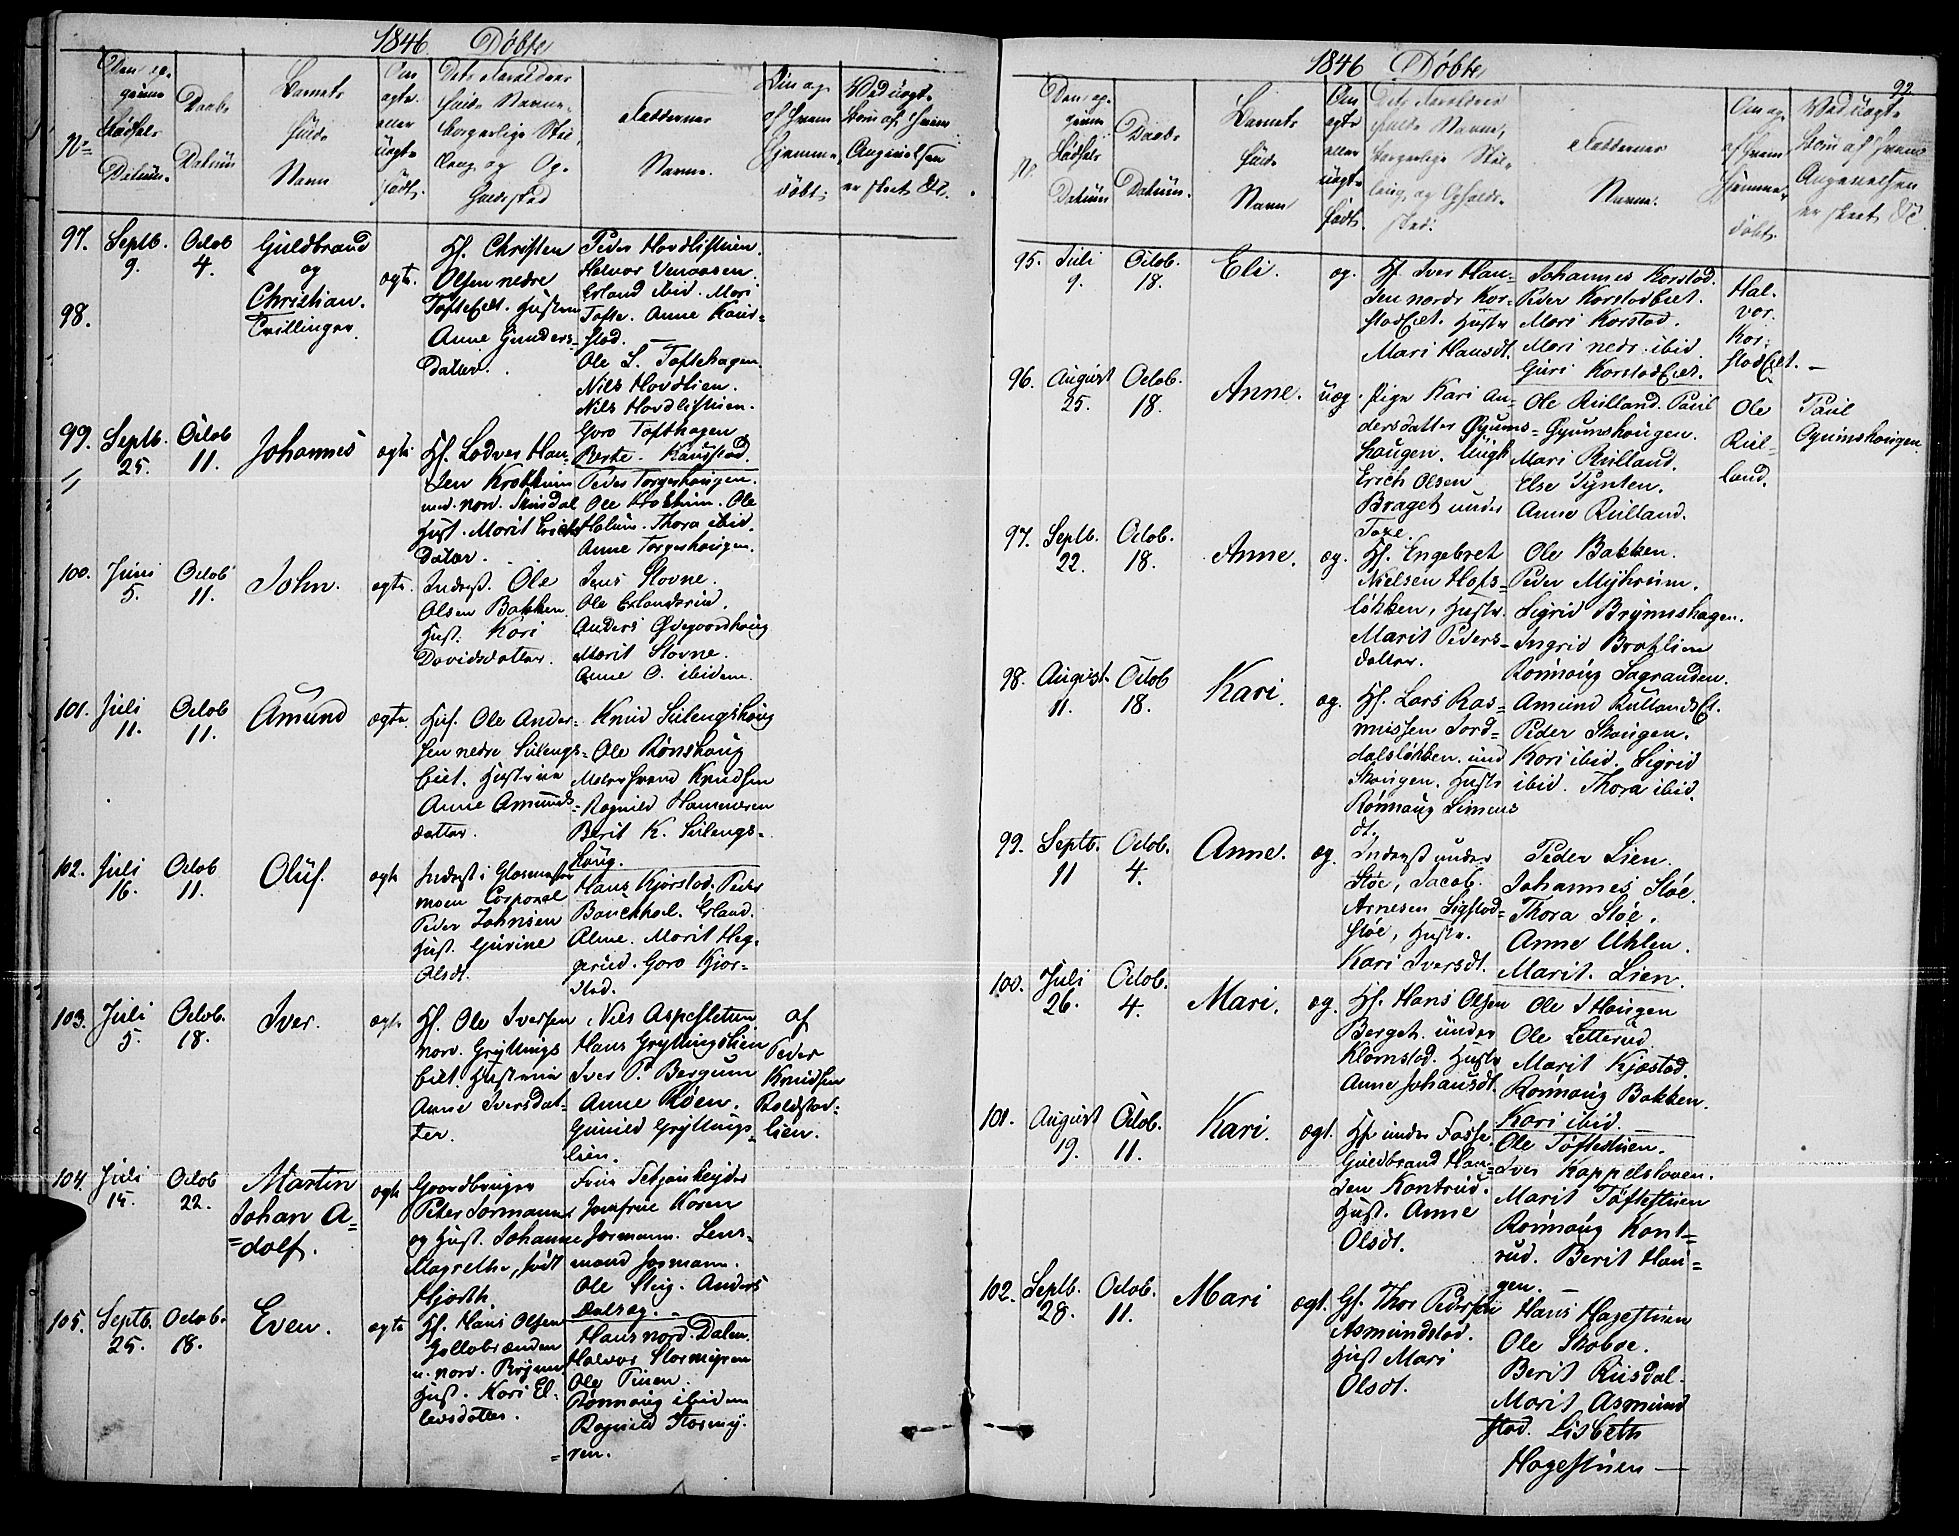 1846 Döbte
No
Den op-
givne
Födsels
Datum.
Daabs
Datum
Barnets
fulde
Navn
Om
ægte
eller
uægte
födt.
Dets Forældres
fulde Navne,
borgerlige Stil-
ling og Op-
holdssted
Faddernes
Navne.
Ved uægte
Börn af hvem
Angivelsen
er skeet &c.
97.
98.
Septb.
9.
Octob
4.
Guldbrand
og
Christian.
Tvillinger.
ægte.
Hf. Christen
Olsen nedre
Tofte Eiet. Hustru
Anne Gunders-
datter.
Peder Hovdlistuen.
Halvor Venaasen.
Erland ibid. Mari
Tofte. Anne Kand-
stad.
Ole L. Toftehagen.
Nils Hovdlien.
Nils Hovdlistuen.
Goro Tofthagen
Berte Kandstad.
99.
Septb.
25.
Octob
11.
Johannes
ægte
Hf. Lodver Han-
sen
Hust. Marit Erichs
Datter.
Peder Torgershougen.
Ole
Thora ibid.
Anne Torgershougen.
100.
Juni
5.
Octob
11.
John.
ægte.
Inderst. Ole
Olsen Bakken
Hust. Kari
Davidsdatter.
Jens Stovne.
Ole Erlandsrud.
Anders Ödegaardhoug
Marit Stovne.
Anne O. ibidem.
101.
Juli
11.
Octob
11.
Amund
ægte
Huf. Ole Ander-
sen nedre Sulengs-
Eiet. Hustrue
Anne Amunds-
datter.
Knud Sulengshoug
Ole Rönshoug
Knudsen
Ragnild Hammeren
Berit K. Sulengs-
houg.
102.
Juli
16.
Octob
11.
Oluf.
ægte
Inderst i Glasmester
moen Corporal
Peder Johnsen
Hust. Gurine
Olsdt.
Hans Kjorstad. Peder
Erland
Marit Heg-
gerud. Goro Kjor-
stad.
103.
Juli
5.
Octob.
18.
Iver.
ægte
Hf. Ole Iversen
nord. Gryttings
Eiet. Hustrue
Anne Iversdat-
ter.
Nils Aspestuen
Hans Gryttingslien
Iver P. Bergum
Anne Röen.
Gunild Gryttings-
lien.
af
Peder
Knudsen
Boldstad-
lien.
104.
Juli
15.
Octob
22.
Martin
Johan A-
dolf.
ægte
Gaardbruger
Peter Jormann
og Hust. Johanne
Magrethe, född
Hjorth.
Jomfrue Karen
Jormann. Lens-
mand Jormann.
Ole Steig. Anders
105.
Septb.
25.
Octob.
18.
Even.
ægte
Hf. Hans Olsen
u. nord. Brynn
Hust. Kari El-
levsdatter.
Hans nord. Dalen.
Halvor Stormyren
Ole Tuen.
Rönnaug ibidem
Ragnild Stormy-
ren.
1846 Döbte
92
No.
Den op-
givne
Födsels
Datum
Daabs
Datum.
Barnets
fulde
Navn
Om
ægte
eller
uægte
födt.
Dets Forældres
fulde Navne,
borgerlige Stil-
ling, og Opholds-
sted.
Faddernes
Navne.
Om og
af hvem
hjemme-
döbt.
Ved uægte
Börn af hvem
Angivelsen
er skeet &c
95.
Juli
9.
Octob.
18.
Eli.
æg.
Hf. Iver Han-
sen nordr Kor-
stad Eiet. Hustr
Mari Hansdt.
Johannes Korstad.
Peder Korstad Eiet.
Mari Korstad.
Mari nedr. ibid
Guri Korstad Eiet.
Hal-
vor
Kor-
stad Eiet.
96.
August
25.
Octob.
18.
Anne.
uæg.
Pige Kari An-
dersdatter Öyums-
hougen. Ungk
Erich Olsen
Braget under
Ole Rulland. Paul
Öyumshougen.
Mari Rulland.
Else Tynten.
Anne Rulland.
Ole
Rul-
land.
Paul
Oyumshougen.
97.
Septb.
22.
Octob.
18.
Anne.
æg.
Hf. Engebret
Nielsen Hofs-
lökken, Hustr
Marit Peders-
datter.
Ole Bakken.
Peder Myhreim.
Sigrid Brynnshagen.
Ingrid Bratlien
Rönnoug Lagranden.
98.
August
11.
Octob
18.
Kari.
æg.
Hf. Lars Ras-
mussen Jord-
dalslökken. und
Skougen. Hustr
Rönnaug Simens
dt.
Amund Rullands Et.
Peder Skougen.
Kari ibid. Sigrid
ibid. Thora ibid.
99.
Septb.
11
Octob.
4.
Anne.
æg.
Inderst under
Stöe, Jacob
Arnesen Sigstad-
stöe, Hustr.
Kari Iversdt.
Peder Lien.
Johannes Stöe.
Thora Stöe.
Anne Uhlen.
Marit Lien.
100.
Juli
26.
Octob.
4.
Mari.
æg.
Hf. Hans Olsen
Berget under
Klomstad. Hustr
Anne Johansdt.
Ole I Hougen
Ole Letterud.
Marit Kjostad.
Rönnoug Bakken.
Kari ibid.
101.
August
19.
Octob.
11.
Kari.
ægt.
Hf. under Fosse
Guldbrand Han-
sen Kontrud.
Hust. Anne
Olsdt.
Ole Toftestuen.
Iver Kappelsloven.
Marit Toftestuen
Rönnoug Kont-
rud. Berit Hou-
gen.
102.
Septb.
28.
Octob.
11.
Mari
ægt.
Gf. Thor Pedersen
Asmundstad.
Hust Mari
Olsdt.
Hans Hagestuen
Ole Skaboe.
Berit Rusdal.
Marit Asmund
stad. Lisbeth
Hagestuen